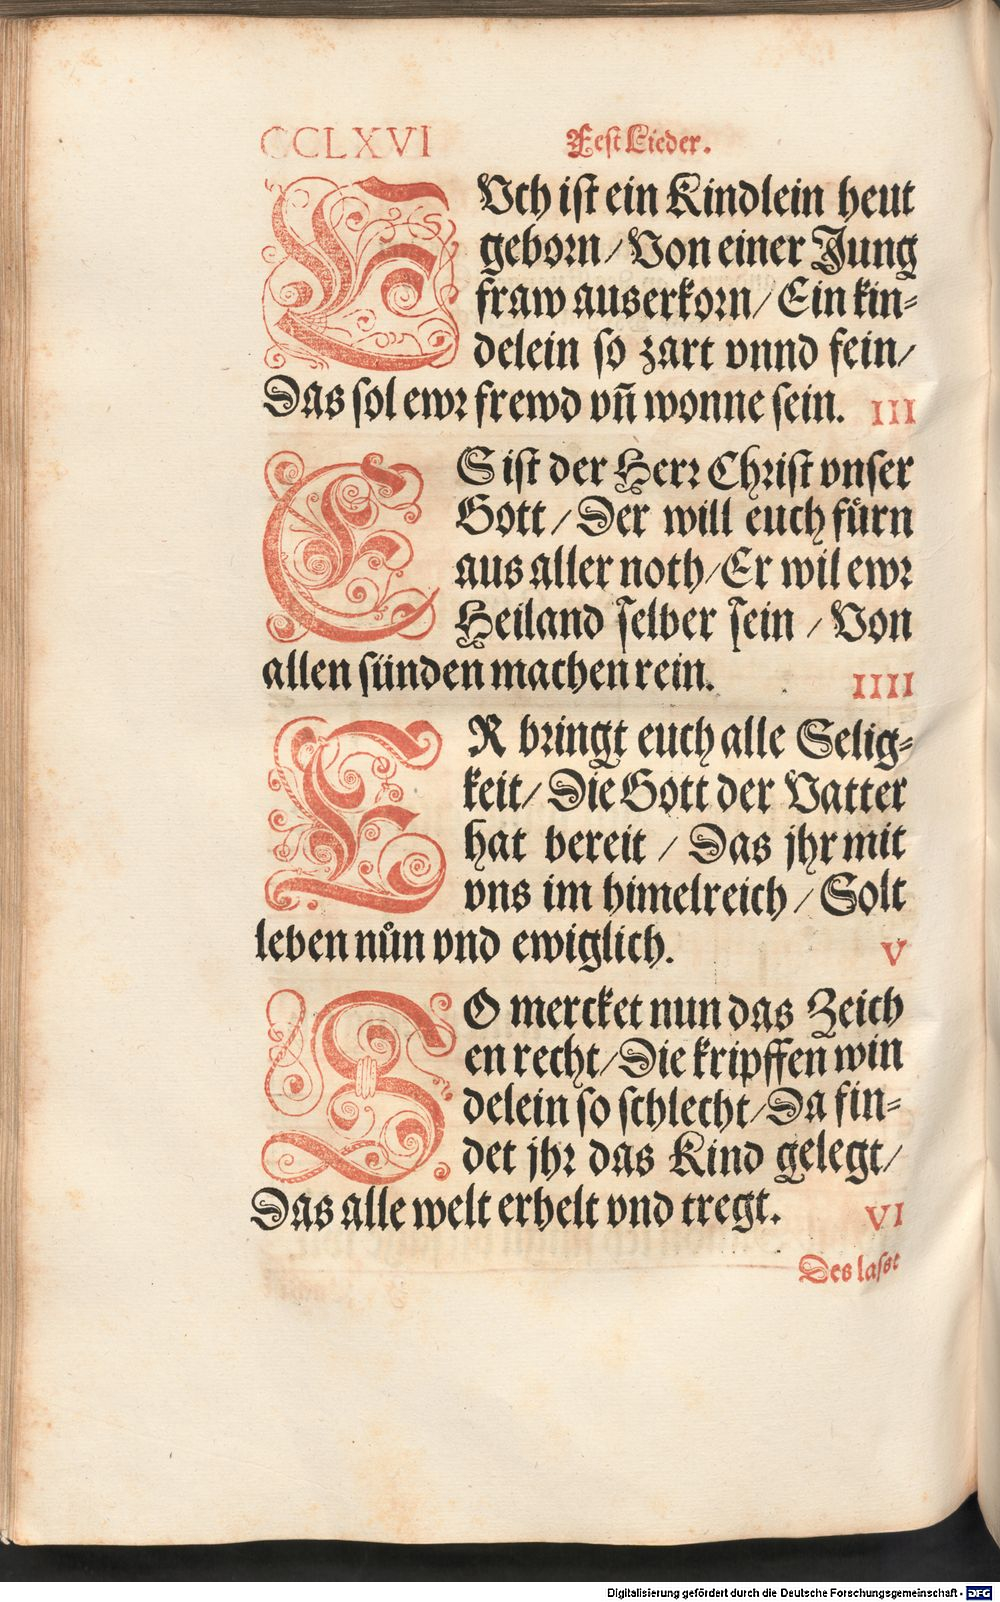 CCLXVI Fest Lieder.
EVch ist ein Kindlein heut
geborn / Von einer Jung
fraw auserkorn / Ein kin-
delein so zart vnnd fein /
Das sol ewr frewd vñ wonne sein. III
ES ist der Herr Christ vnser
Gott / Der will euch fürn
aus aller noth / Er wil ewr
Heiland selber sein / Von
allen sünden machen rein. IIII
ER bringt euch alle Selig-
keit / Die Gott der Vatter
hat bereit / Das jhr mit
vns im himelreich / Solt
leben nůn vnd ewiglich. V
SO mercket nun das Zeich
en recht / Die kripffen win
delein so schlecht / Da fin-
det jhr das Kind gelegt /
Das alle welt erhelt vnd tregt. VI
Des lasst
Digitalisierung gefördert durch die Deutsche Forschungsgemeinschaft - DFG